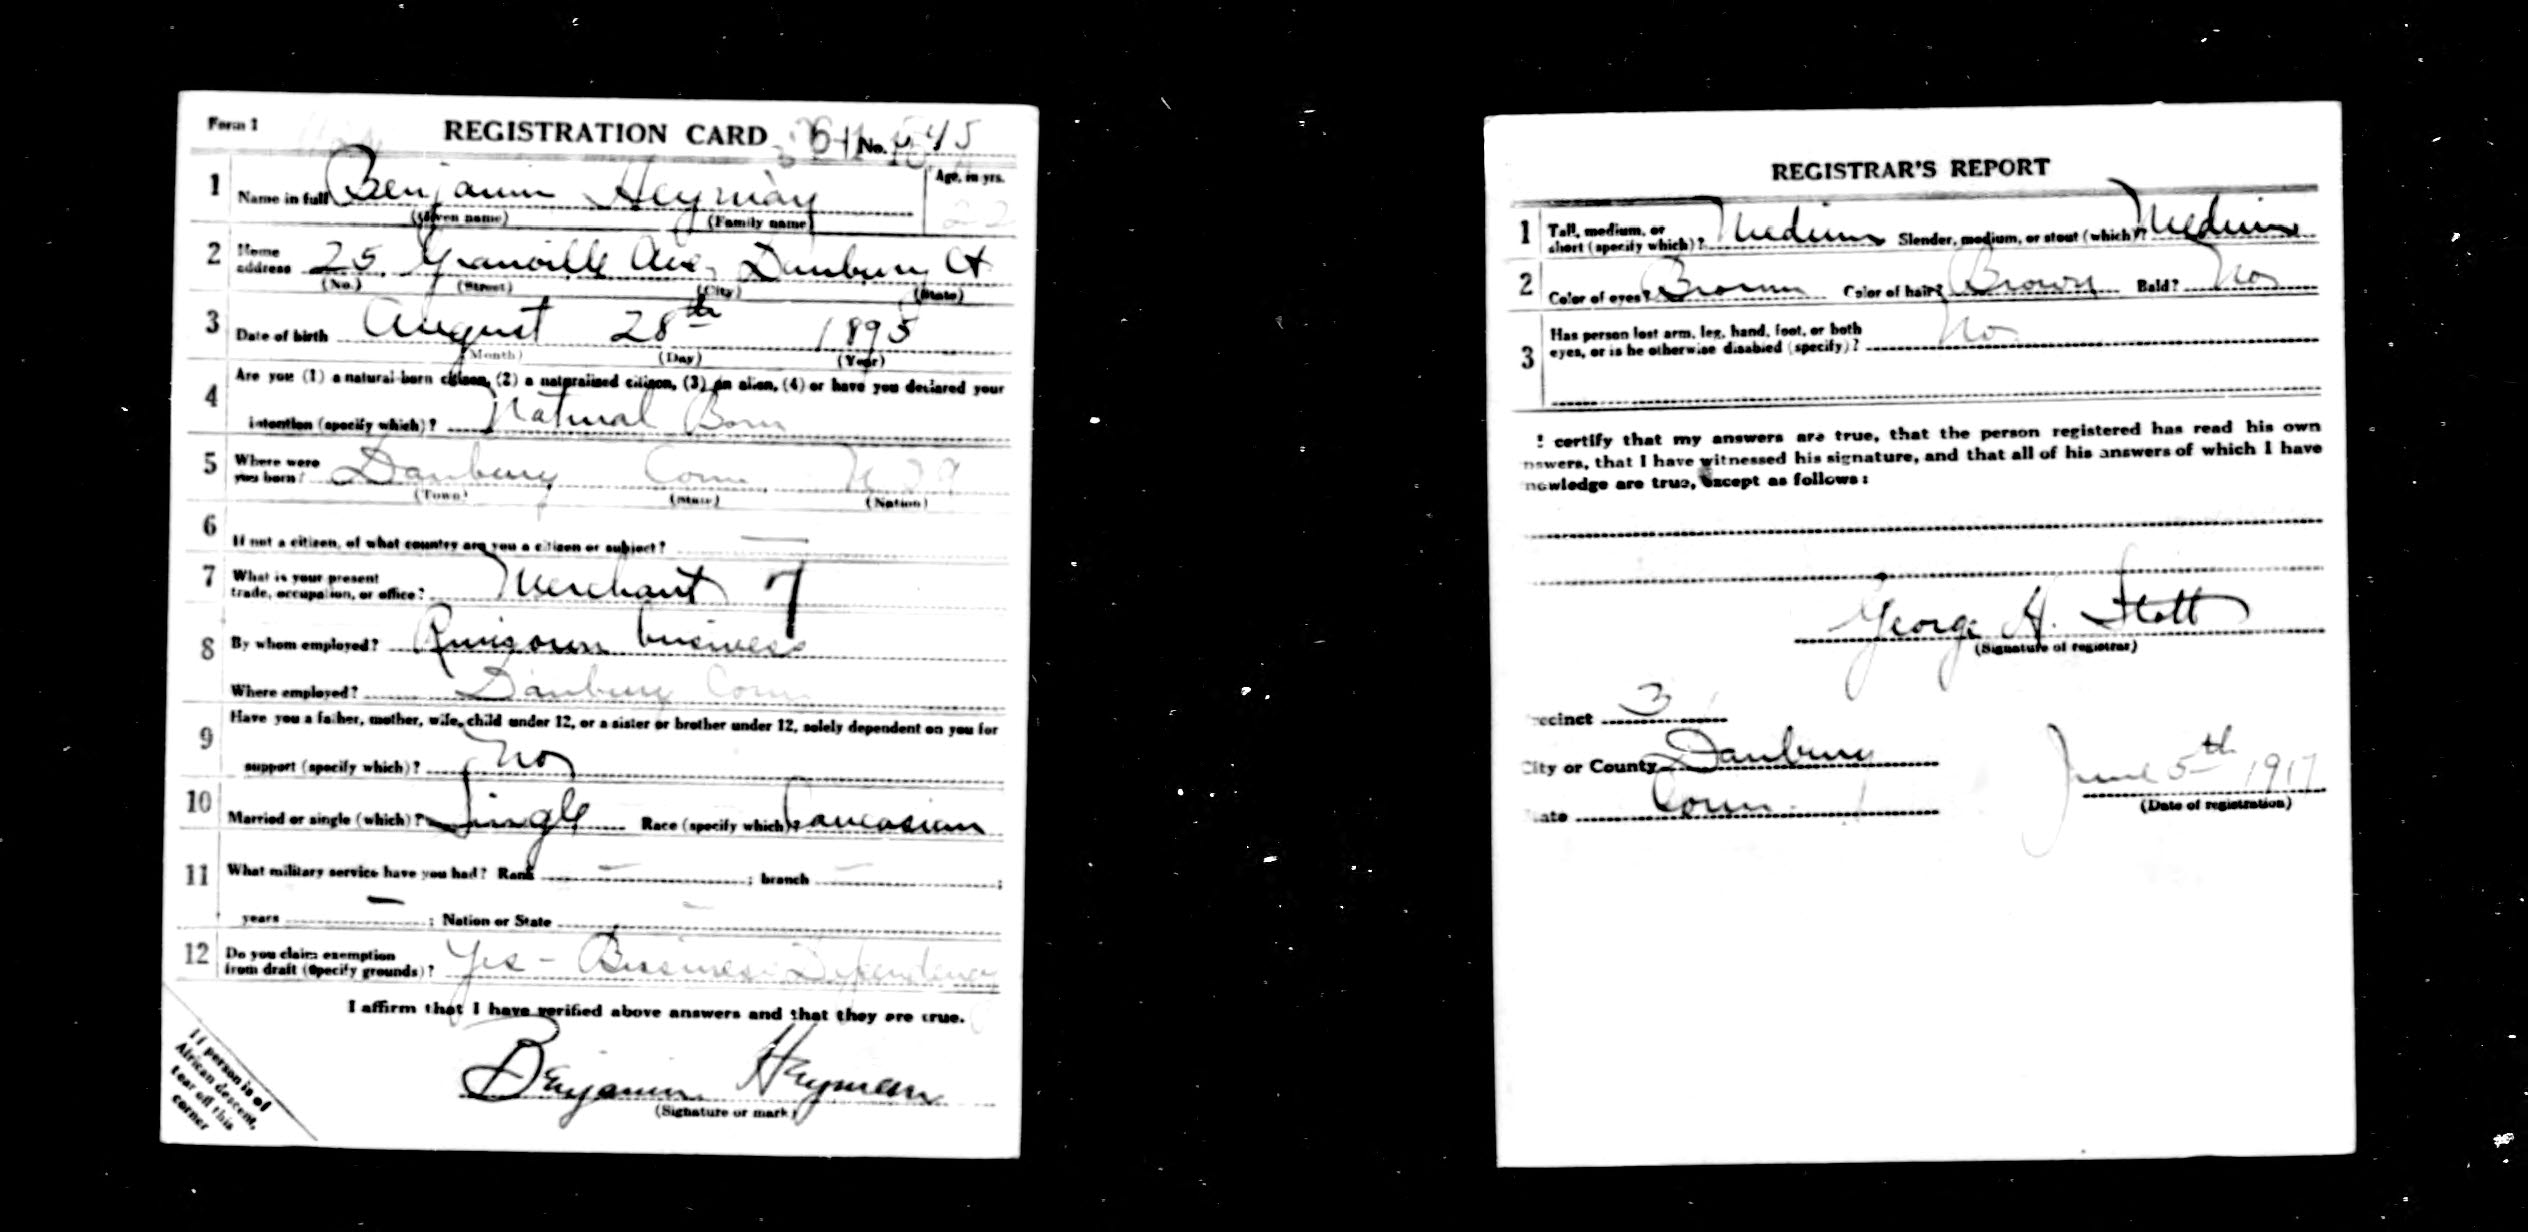 Form 1
REGISTRATION CARD No. 45
1 Name in full Benjamin Heyman Age, in yrs.
(Given name) (Family name) 22
2 Home address 25 Granville Ave, Danbury Ct
(No.) (Street) (City) (State)
3 Date of birth August 28th 1895
(Month) (Day) (Year)
4 Are you (1) a natural-born citizen, (2) a naturalized citizen, (3) an alien, (4) or have you declared your
intention (specify which)? Natural Born
5 Where were you born? Danbury Conn USA
(Town) (State) (Nation)
6 If not a citizen, of what country are you a citizen or subject? —
7 What is your present trade, occupation, or office? Merchant 7
8 By whom employed? Runs own business
Where employed? Danbury Conn
9 Have you a father, mother, wife, child under 12, or a sister or brother under 12, solely dependent on you for
support (specify which)? No
10 Married or single (which)? Single Race (specify which)? Caucasian
11 What military service have you had? Rank — ; branch — ;
years — ; Nation or State —
12 Do you claim exemption from draft (specify grounds)? Yes - Business Dependency
I affirm that I have verified above answers and that they are true.
Benjamin Heyman
(Signature or mark)
If person is of
African descent,
tear off this
corner
REGISTRAR'S REPORT
1 Tall, medium, or short (specify which)? Medium Slender, medium, or stout (which)? Medium
2 Color of eyes? Brown Color of hair? Brown Bald? No
3 Has person lost arm, leg, hand, foot, or both
eyes, or is he otherwise disabled (specify)? No
I certify that my answers are true, that the person registered has read his own
nswers, that I have witnessed his signature, and that all of his answers of which I have
nowledge are true, except as follows:
George H. Stott
(Signature of registrar)
recinct 3
City or County Danbury
June 5th 1917
ate Conn.
(Date of registration)